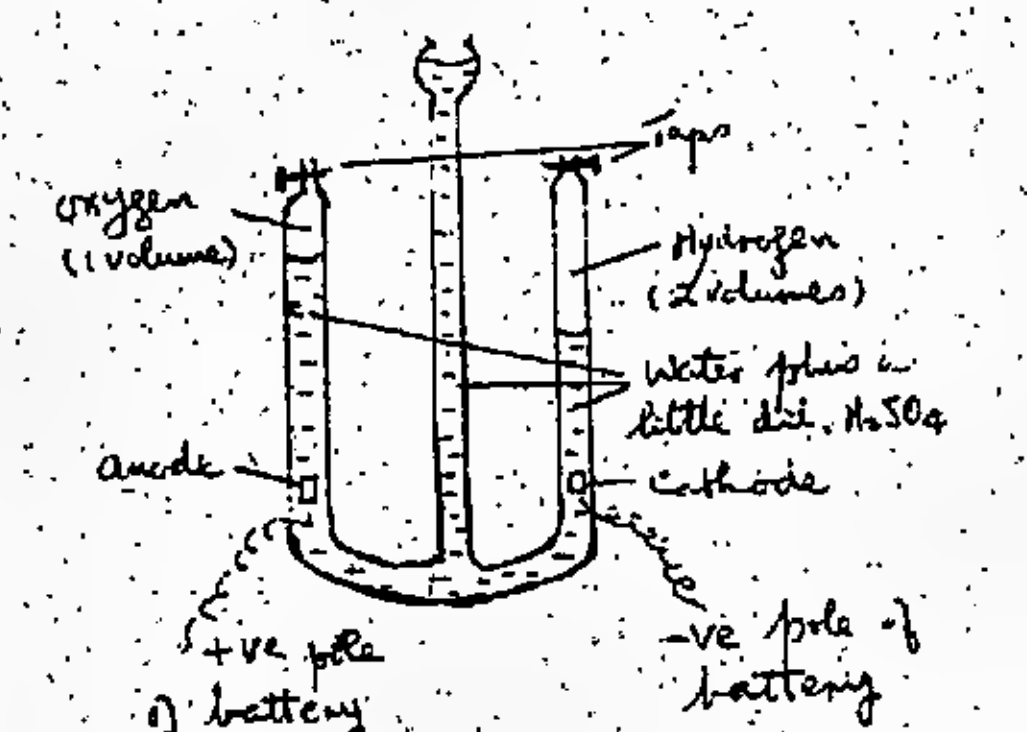 Taps
Oxygen
(1 volume)
Hydrogen
(2 volumes)
Water plus a
little dil. H₂SO₄
Anode
Cathode
+ve pole
of battery
-ve pole of
battery